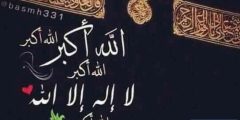 @basmh331
الله أكبر الله أكبر
الله أكبر
لا إله إلا الله